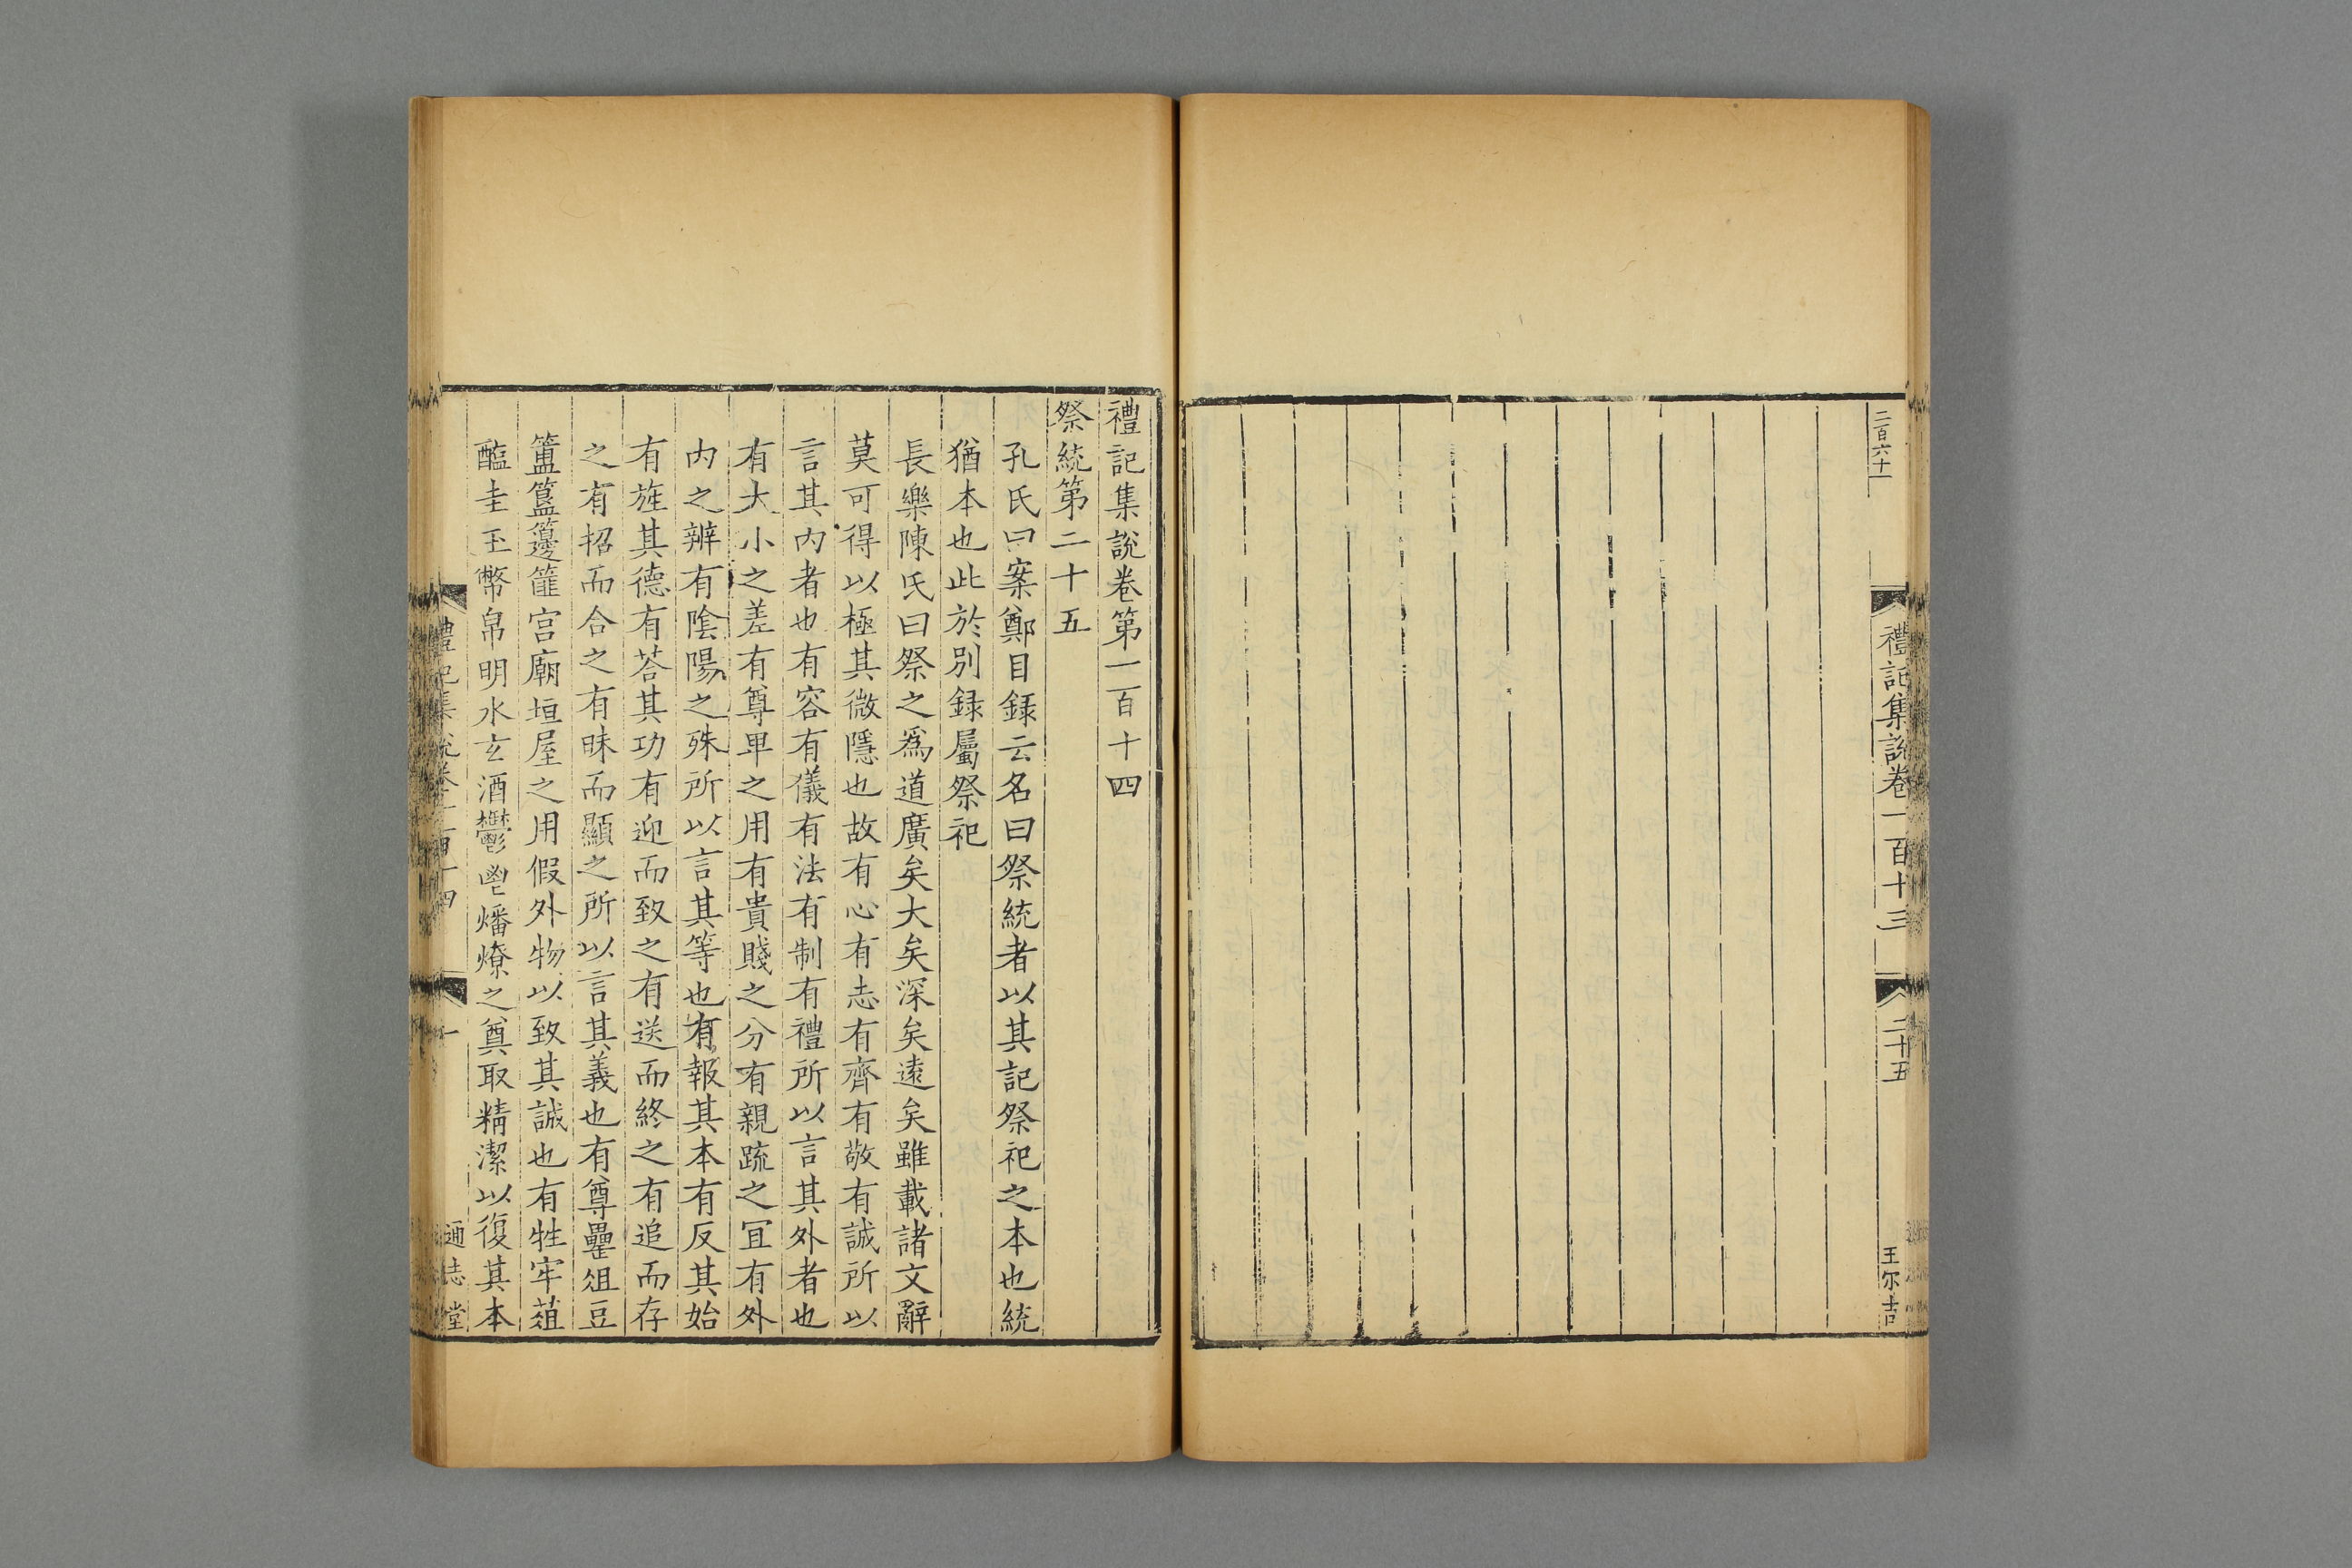 二百六十一
禮記集說卷一百十三
二十五
王尔吉
禮記集說卷第一百十四
祭統第二十五
孔氏曰案鄭目録云名曰祭統者以其記祭祀之本也統
猶本也此於別録屬祭祀
長樂陳氏曰祭之爲道廣矣大矣深矣遠矣雖載諸文辭
莫可得以極其微隱也故有心有志有齊有敬有誠所以
言其内者也有容有儀有法有制有禮所以言其外者也
有大小之差有尊卑之用有貴賤之分有親疏之冝有外
内之辨有陰陽之殊所以言其等也有報其本有反其始
有旌其德有荅其功有迎而致之有送而終之有追而存
之有招而合之有昧而顯之所以言其義也有尊罍俎豆
簠簋籩篚宫廟垣屋之用假外物以致其誠也有牲牢葅
醢圭玉幣帛明水玄酒鬱鬯燔燎之奠取精潔以復其本
禮記集說卷一百十四
一
通志堂